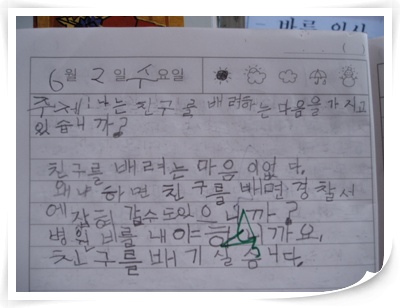 바를 인사
6월 2일 수요일
주제:나는 친구를 배려하는 마음을 가지고
있습니까?
친구를 배려는 마음이 없다.
왜냐하면 친구를 배면 경찰서
에 잡혀 갈수도 있으니까?
병원비를 내야 하니까요.
친구를 배기 실습니다.